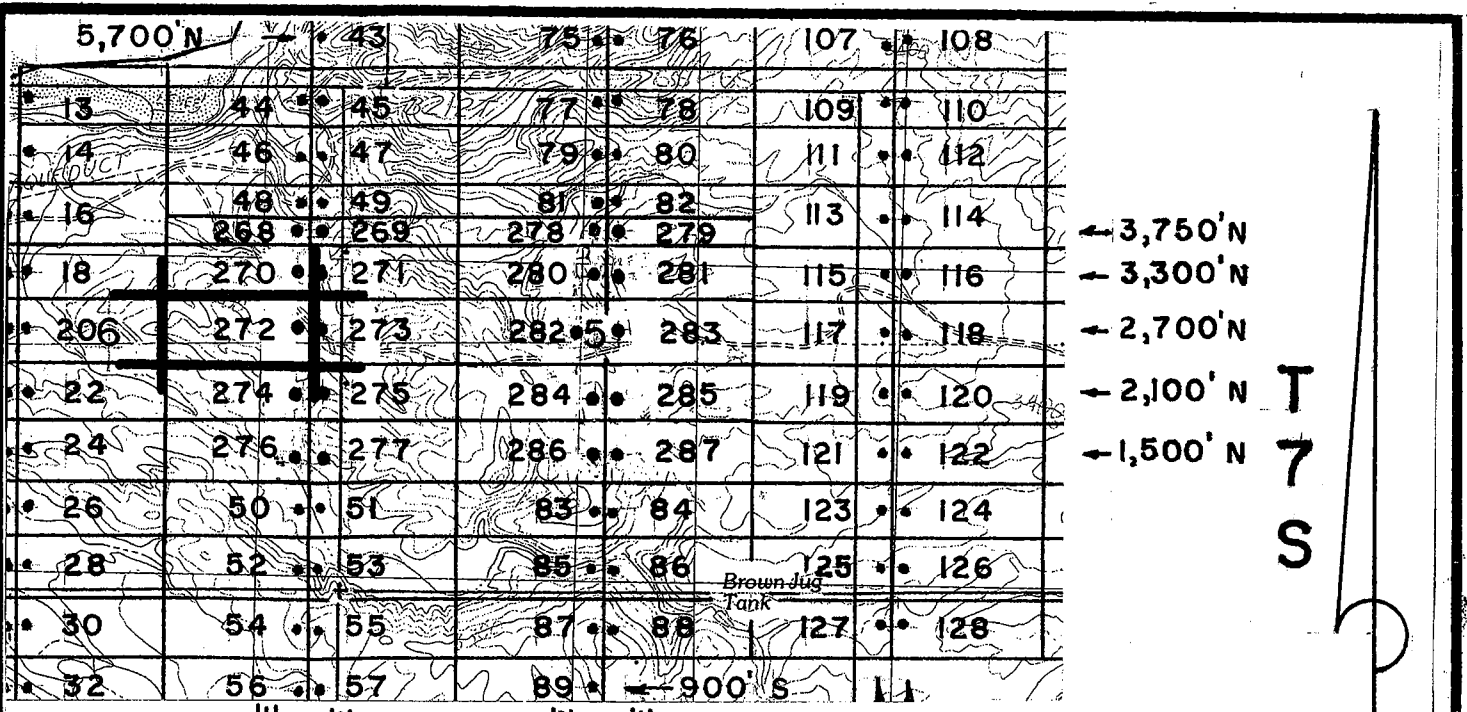 5,700'N 43 75 76 107 108
13 44 45 77 78 109 110
14 46 47 79 80 111 112
AQUEDUCT
16 48 49 81 82 113 114
268 269 278 279 ←3,750'N
18 270 271 280 281 115 116 ←3,300'N
206 272 273 282 5 283 117 118 ←2,700'N
22 274 275 284 285 119 120 ←2,100'N
T
24 276 277 286 287 121 122 ←1,500'N
7
26 50 51 83 84 123 124
S
28 52 53 85 86 125 126
Brown Jug
Tank
30 54 55 87 88 127 128
32 56 57 89 ←900' S